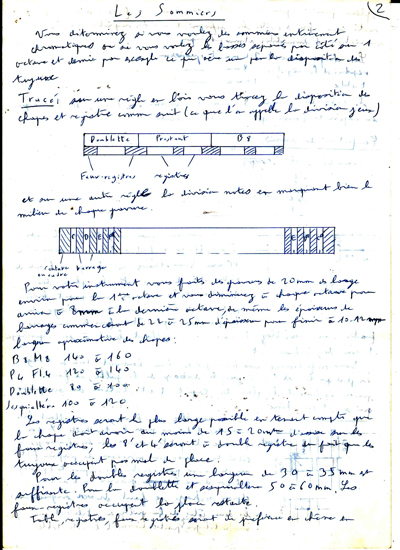 Les Sommiers
2
Vous déterminez si vous voulez des sommiers entièrement
chromatiques ou si vous voulez les basses séparées par côté sur 1
octave et demie par exemple ce qui sera vu par la disposition des
tuyaux
Tracé: sur une règle en bois vous tracez la disposition des
chapes et registres comme suit (ce que l'on appelle la division jeux)
Doublette Prestant B 8
Faux-registres registres
et sur une autre règle la division notes en marquant bien le
milieu de chaque gravure.
C D E
barrage
Pour votre instrument vous faites des gravures de 20 mm de large
environ pour la 1ère octave et vous diminuez à chaque octave pour
arriver à 8mm à la dernière octave, de même les épaisseurs de
barrages commencent de 22 à 25mm d'épaisseur pour finir à 10.12 mm
largeur approximative des chapes:
B8 M8 140 à 160
P4 Fl.4 120 à 140
Doublette 80 à 100
100 à 120
Les registres seront le plus large possible en tenant compte que
la chape doit avoir au moins de 15 à 20mm d'assise sur les
faux registres; les 8' et 4' seront à double registre en fait que les
tuyaux occupent pas mal de place.
Pour les doubles registres une largeur de 30 à 35 mm est
suffisante. Pour la doublette et 50 à 60mm. Les
faux-registres occupent la place restante
Table, registres, faux registres seront de préférence en chêne en